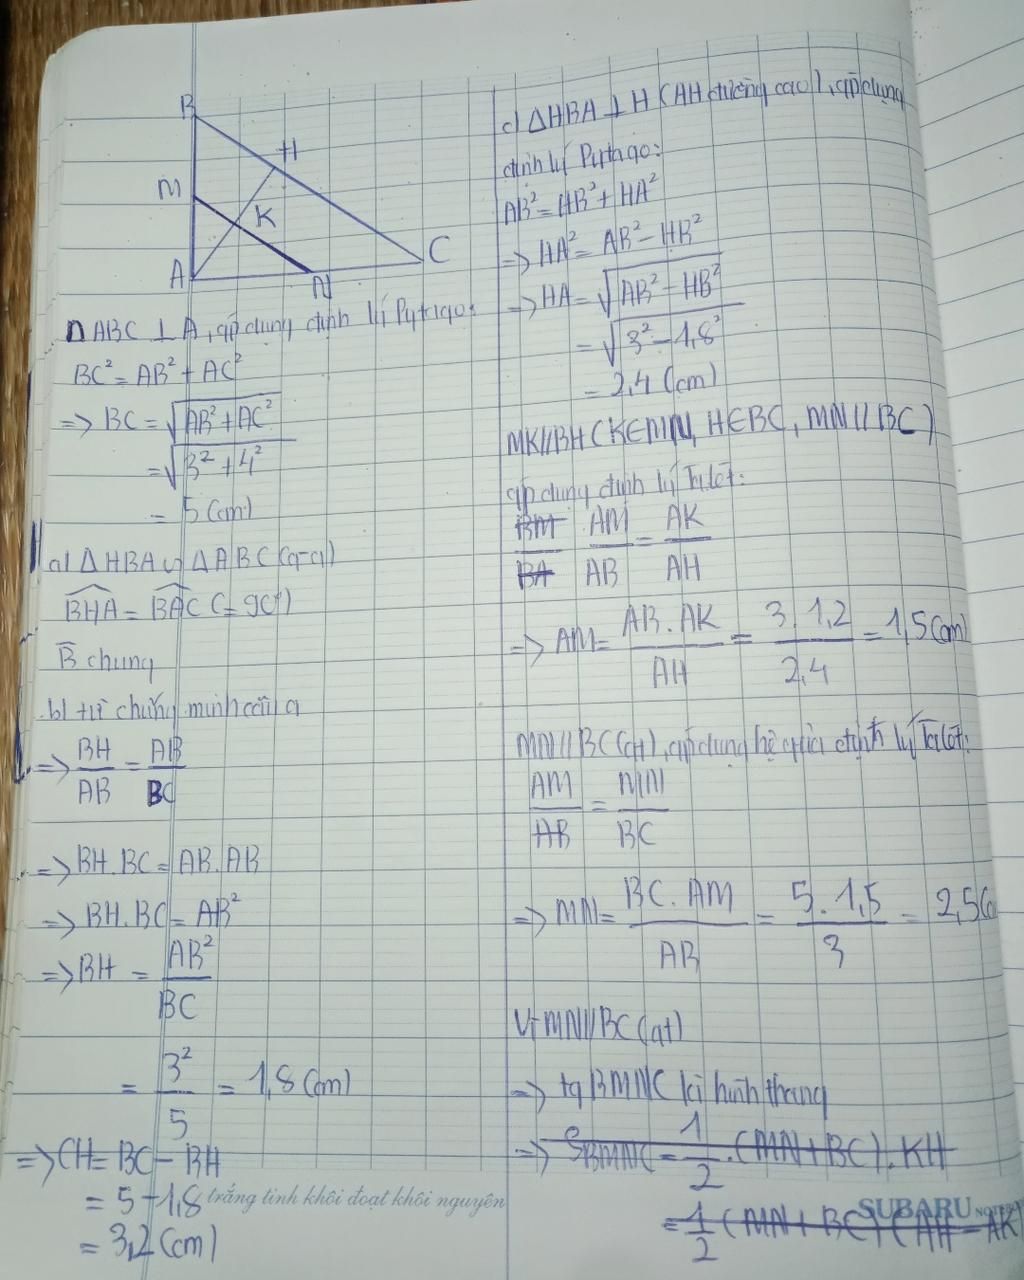 B
H
M
K
C
A
N
ΔABC ⊥ A, áp dụng định lí Pytago:
BC² = AB² + AC²
=> BC = √(AB² + AC²)
= √(3² + 4²)
= 5 (cm)
a) ΔHBA ∽ ΔABC (g-g)
BHA = BAC (= 90°)
B chung
b) từ chứng minh câu a
=> BH/AB = AB/BC
=> BH.BC = AB.AB
=> BH.BC = AB²
=> BH = AB²/BC
= 3²/5 = 1,8 (cm)
=> CH = BC - BH
= 5 - 1,8
= 3,2 (cm)
trắng tinh khôi đoạt khôi nguyên
c) ΔHBA ⊥ H (AH đường cao), áp dụng
định lý Pytago:
AB² = HB² + HA²
=> HA² = AB² - HB²
=> HA = √(AB² - HB²)
= √(3² - 1,8²)
= 2,4 (cm)
MK//BH (K∈MN, H∈BC, MN//BC)
áp dụng định lý Talét:
BM/BA AM/AB = AK/AH
=> AM = AB.AK/AH = 3.1,2/2,4 = 1,5 (cm)
MN//BC (gt), áp dụng hệ quả định lý Talét:
AM/AB = MN/BC
=> MN = BC.AM/AB = 5.1,5/3 = 2,5 (c
Vì MN//BC (gt)
=> tg BMNC là hình thang
=> SBMNC = 1/2.(MN + BC).KH
= 1/2 (MN + BC) (AH - AK)
SUBARU NOTEBO